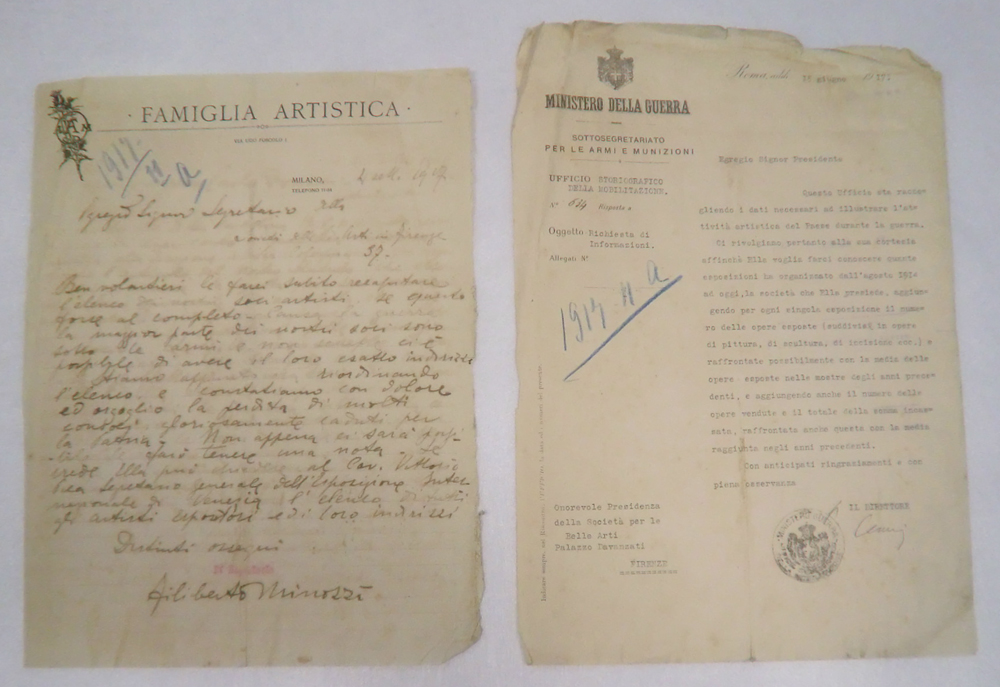 · FAMIGLIA ARTISTICA ·
MILANO,
1917
11 a,
Egregio Signor Segretario della
37.
Ben volontieri le farei subito recapitare
l'elenco dei nostri soci artisti se questo
fosse al completo. Causa la guerra
la maggior parte dei nostri soci sono
sotto le armi e non sempre ci è
possibile di avere il loro esatto indirizzo
Stiamo appunto riordinando
l'elenco, e constatiamo con dolore
ed orgoglio la perdita di molti
consoci gloriosamente caduti per
la patria. Non appena ci sarà possi-
farò tenere una nota. Se
crede Ella può chiedere al Cav. Vittorio
Segretario generale dell'Esposizione Inter
nazionale di Venezia l'elenco di tutti
gli artisti espositori e di loro indirizzi
Distinti ossequi
Il Segretario
Filiberto Minozzi
MINISTERO DELLA GUERRA
SOTTOSEGRETARIATO
PER LE ARMI E MUNIZIONI
UFFICIO STORIOGRAFICO
DELLA MOBILITAZIONE.
N° 614 Risposta a
Oggetto Richiesta di
Informazioni.
Allegati N°
1917. 11 a
Roma, addì 16 giugno 1917.
Egregio Signor Presidente
Questo Ufficio sta racco-
gliendo i dati necessari ad illustrare l'at-
tività artistica del Paese durante la guerra.
Ci rivolgiamo pertanto alla sua cortesia
affinchè Ella voglia farci conoscere quante
esposizioni ha organizzato dall'agosto 1914
ad oggi, la società che Ella presiede, aggiun-
gendo per ogni singola esposizione il nume-
ro delle opere esposte (suddivisi in opere
di pittura, di scultura, di incisione ecc.) e
raffrontate possibilmente con la media delle
opere esposte nelle mostre degli anni prece-
denti, e aggiungendo anche il numero delle
opere vendute e il totale della somma incas-
sata, raffrontata anche questa con la media
raggiunta negli anni precedenti.
Con anticipati ringraziamenti e con
piena osservanza
IL DIRETTORE
MINISTERO GUERRA
Onorevole Presidenza
della Società per le
Belle Arti
Palazzo Davanzati
FIRENZE